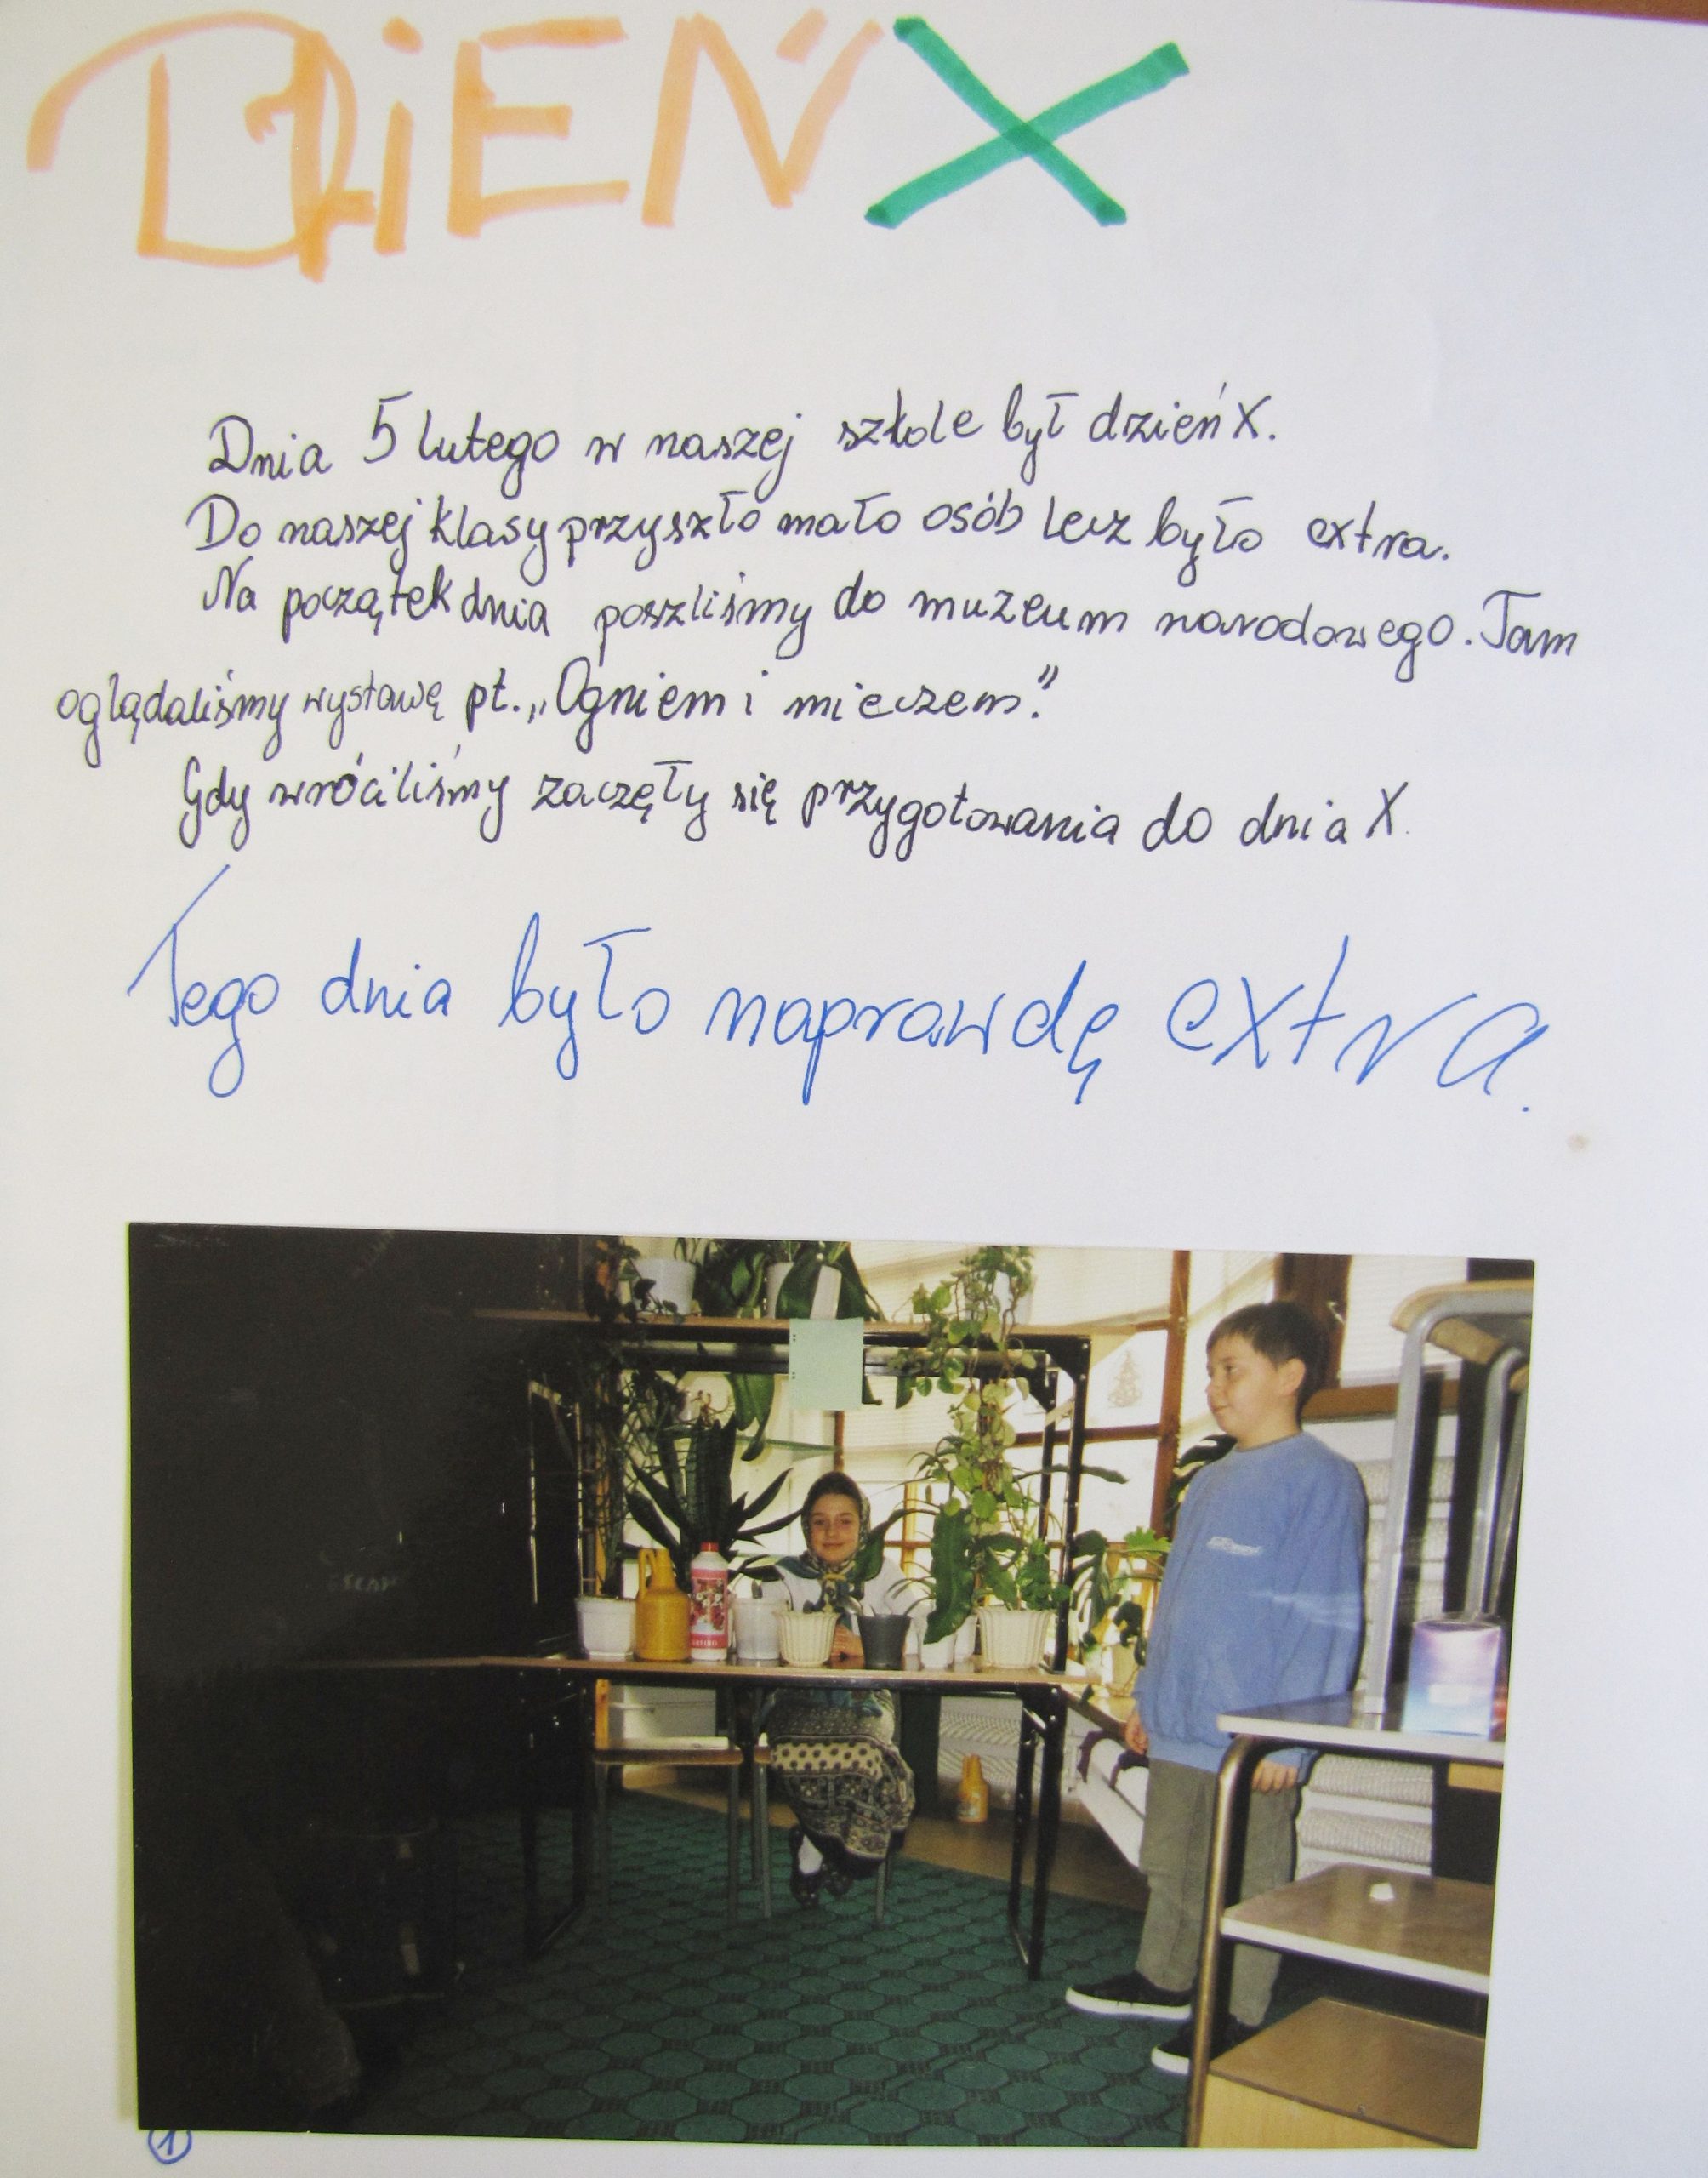 DZiEŃ X
Dnia 5 lutego w naszej szkole był dzień X.
Do naszej klasy przyszło mało osób lecz było extra.
Na początek dnia poszliśmy do muzeum narodowego. Tam
oglądaliśmy wystawę pt. „Ogniem i mieczem".
Gdy wróciliśmy zaczęły się przygotowania do dnia X.
Tego dnia było naprawdę extra.
1